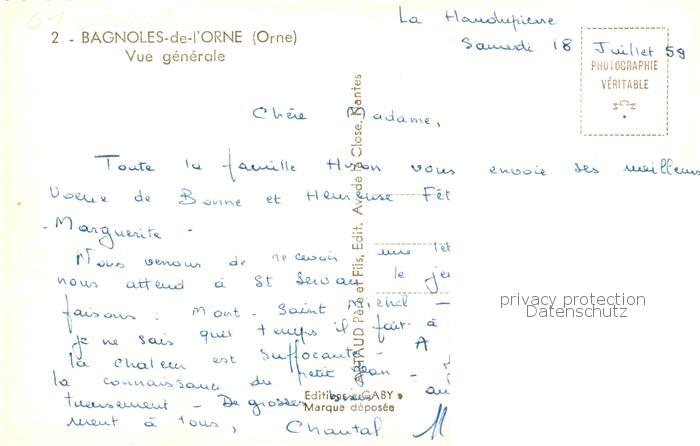 2 - BAGNOLES-de-l'ORNE (Orne)
Vue générale
La Haudupierre
Samedi 18 Juillet 59
PHOTOGRAPHIE
VÉRITABLE
Chère Madame,
Toute la famille Huson vous envoie ses meilleurs
Voeux de Bonne et Heureuse Fêt
- Marguerite -
Nous venons de recevoir une let
nous attend à St Servan le je
faisons : Mont-Saint Michel -
je ne sais quel temps il fait à
la chaleur est suffocante - A
la connaissance du petit Jean -
treusement - De grosses bises au
ment à tous, Chantal M
ARTAUD Père et Fils, Edit. Av. de la Close, Nantes
Editions "GABY"
Marque déposée
privacy protection
Datenschutz